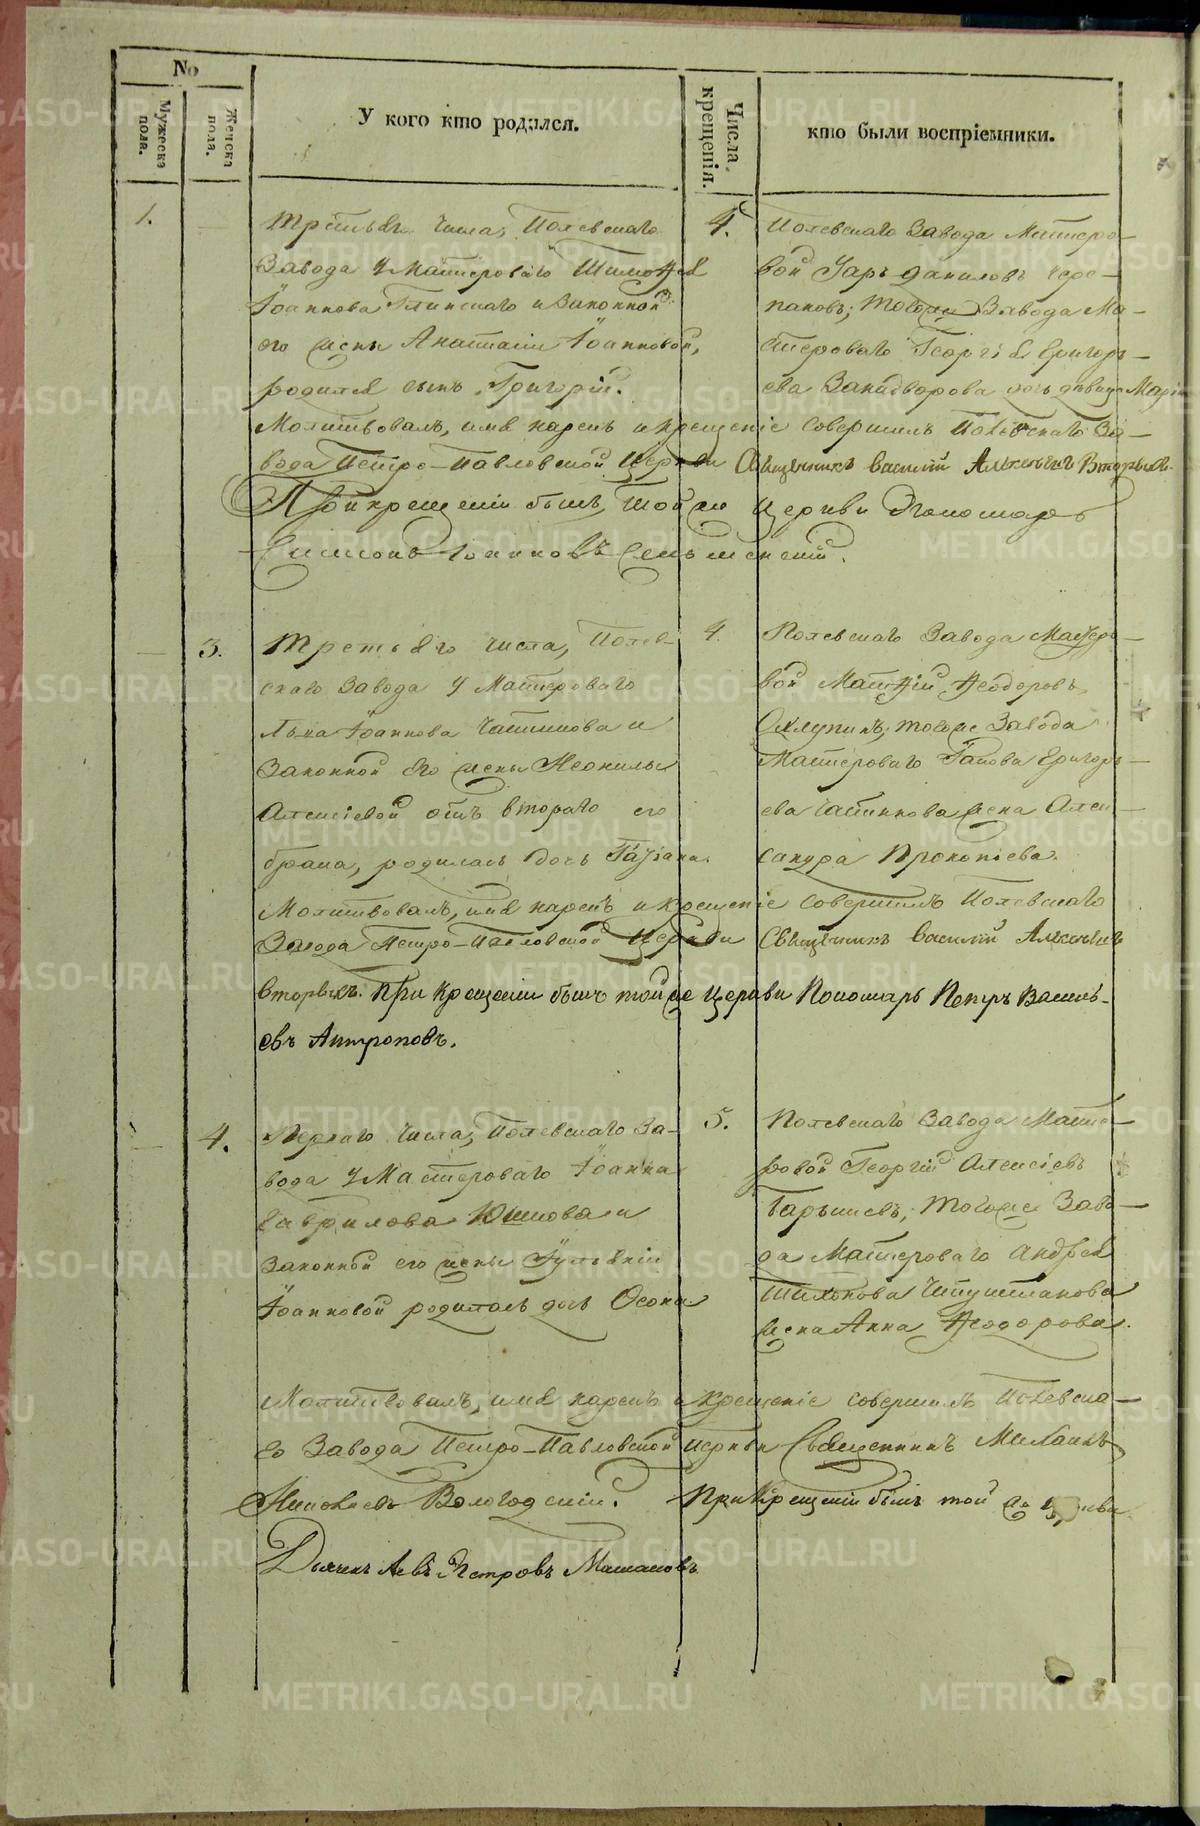 No
Мужеска пола.
Женска пола.
У кого кто родился.
Числа крещенія.
кто были воспріемники.
1.
Третьяго числа, Полевскаго
Завода у Мастероваго Тимоѳея
Іоаннова Глинскаго и Законной
его жены Анастасіи Іоанновой,
родился сынъ Григорій.
4.
Полевскаго Завода Мастеро-
вой Уаръ Даниловъ Чере-
пановъ; тогоже Завода Ма-
стероваго Георгія Григорь-
ева дочь девица Марія
Молитвовалъ, имя нарекъ и крещеніе совершилъ Полевскаго За-
вода Петро-Павловской Церкви Священникъ Василій Алексѣевъ Вторыхъ.
При крещеніи былъ той же Церкви Пономарь
Симеонъ Іоанновъ
3.
Третьяго числа, Полев-
скаго Завода у Мастероваго
Льва Іоаннова и
Законной его жены Неонилы
Алексіевой отъ втораго его
брака, родилась дочь Татіана.
4.
Полевскаго Завода Мастеро-
вой Матѳій Ѳеодоровъ
Охлупинъ; тогоже Завода
Мастероваго Іакова Григорь-
ева жена Алек-
сандра Прокопіева.
Молитвовалъ, имя нарекъ и крещеніе совершилъ Полевскаго
Завода Петро-Павловской Церкви Священникъ Василій Алексѣевъ
Вторыхъ. При Крещеніи былъ тойже Церкви Пономарь Петръ Василь-
евъ Антроповъ.
4.
Перваго числа, Полевскаго За-
вода у Мастероваго Іоанна
Гаврилова Юшкова и
законной его жены Іуліаніи
Іоанновой родилась дочь
5.
Полевскаго Завода Масте-
ровой Георгій Алексіевъ
тогоже Заво-
да Мастероваго Андрея
жена Анна Ѳеодорова.
Молитвовалъ, имя нарекъ и Крещеніе совершилъ Полевска-
го Завода Петро-Павловской церкви Священникъ Михаилъ
Николаевъ Вологодскій. При Крещеніи былъ той же
Дьячекъ Левъ Петровъ
METRIKI.GASO-URAL.RU